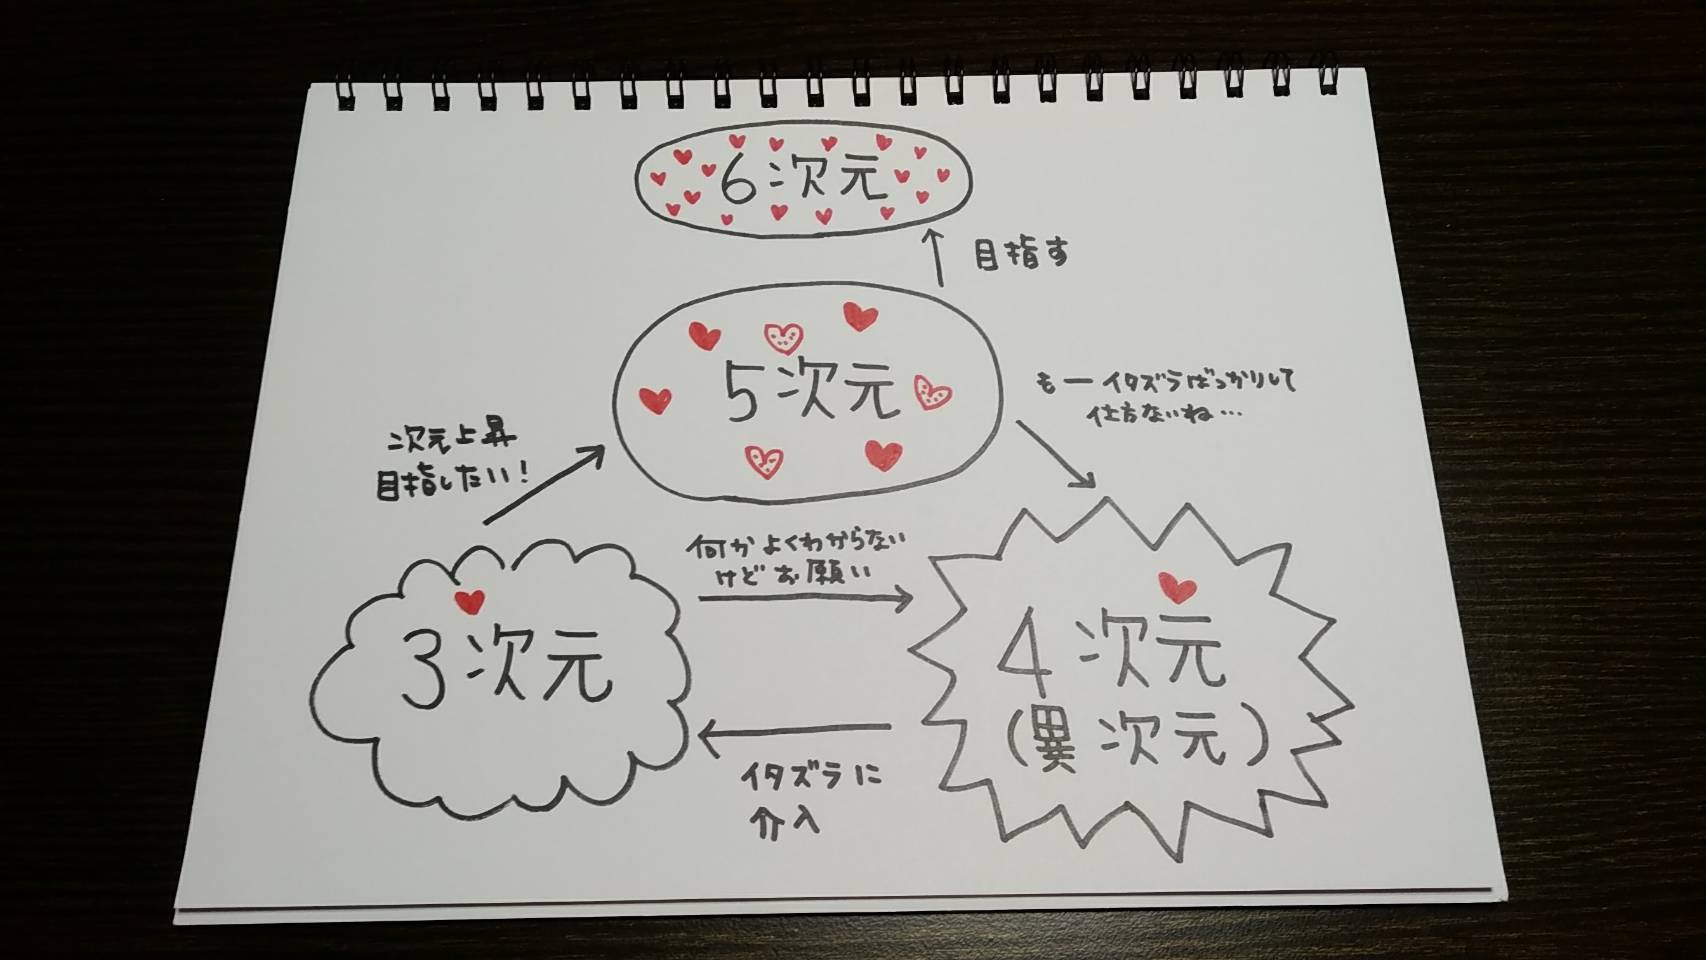 6次元
目指す
5次元
もーイタズラばっかりして
仕方ないね…
次元上昇
目指したい!
何かよくわからない
けどお願い
3次元
4次元
(異次元)
イタズラに
介入